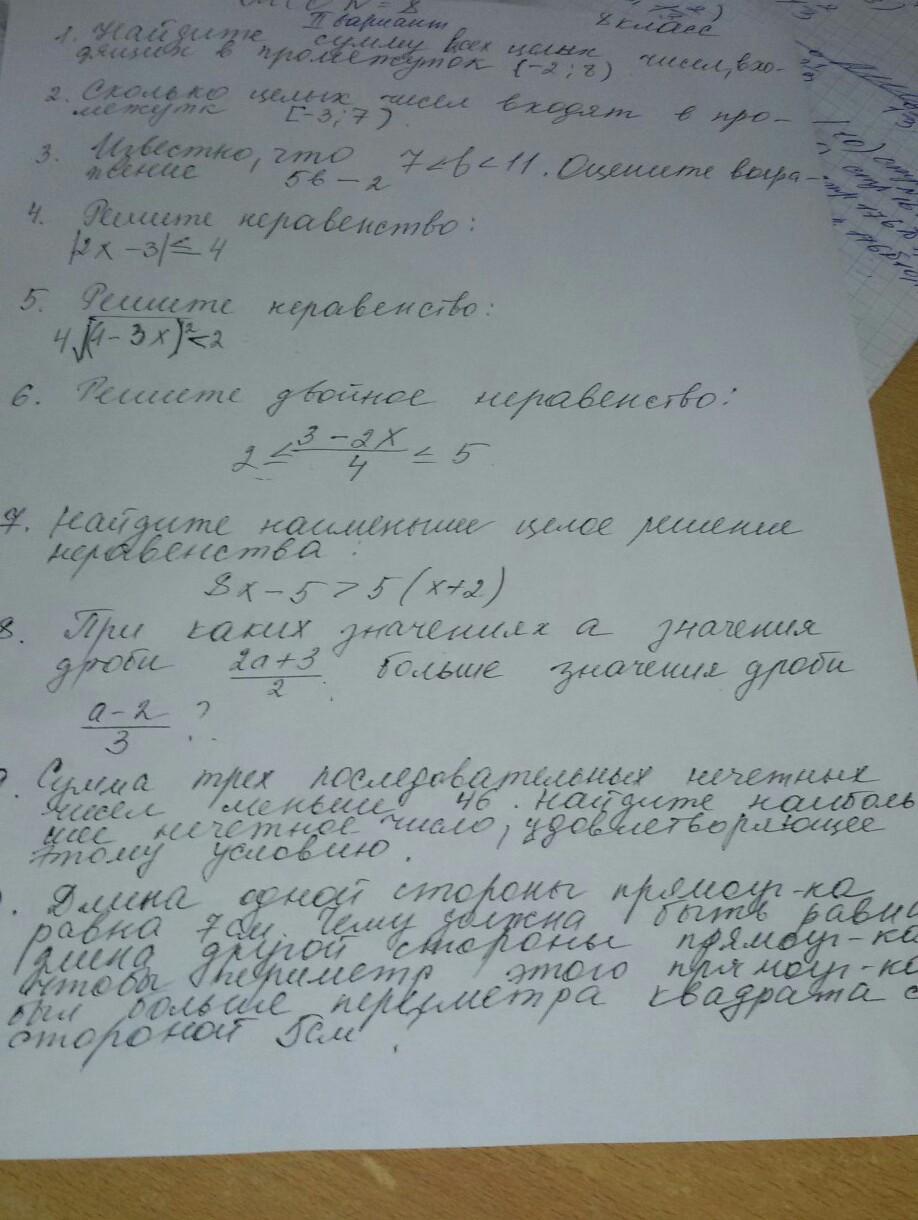 II вариант 8 класс
1. Найдите сумму всех целых чисел, вхо-
дящих в промежуток (-2; 8)
2. Сколько целых чисел входят в про-
межутк [-3; 7)
3. Известно, что 7 < b < 11. Оцените выра-
жение 5b - 2
4. Решите неравенство:
|2x - 3| ≤ 4
5. Решите неравенство:
4√(1 - 3x)² < 2
6. Решите двойное неравенство:
2 ≤ (3 - 2x)/4 ≤ 5
7. Найдите наименьшее целое решение
неравенства:
8x - 5 > 5(x+2)
8. При каких значениях a значения
дроби (2a+3)/2 больше значения дроби
(a-2)/3 ?
Сумма трех последовательных нечетных
чисел меньше 46. Найдите наиболь
шее нечетное число, удовлетворяющее
этому условию.
Длина одной стороны прямоуг-ка
равна 7 см. Чему должна быть равна
длина другой стороны прямоуг-ка
чтобы периметр этого прямоуг-ка
был больше периметра квадрата с
стороной 5см.